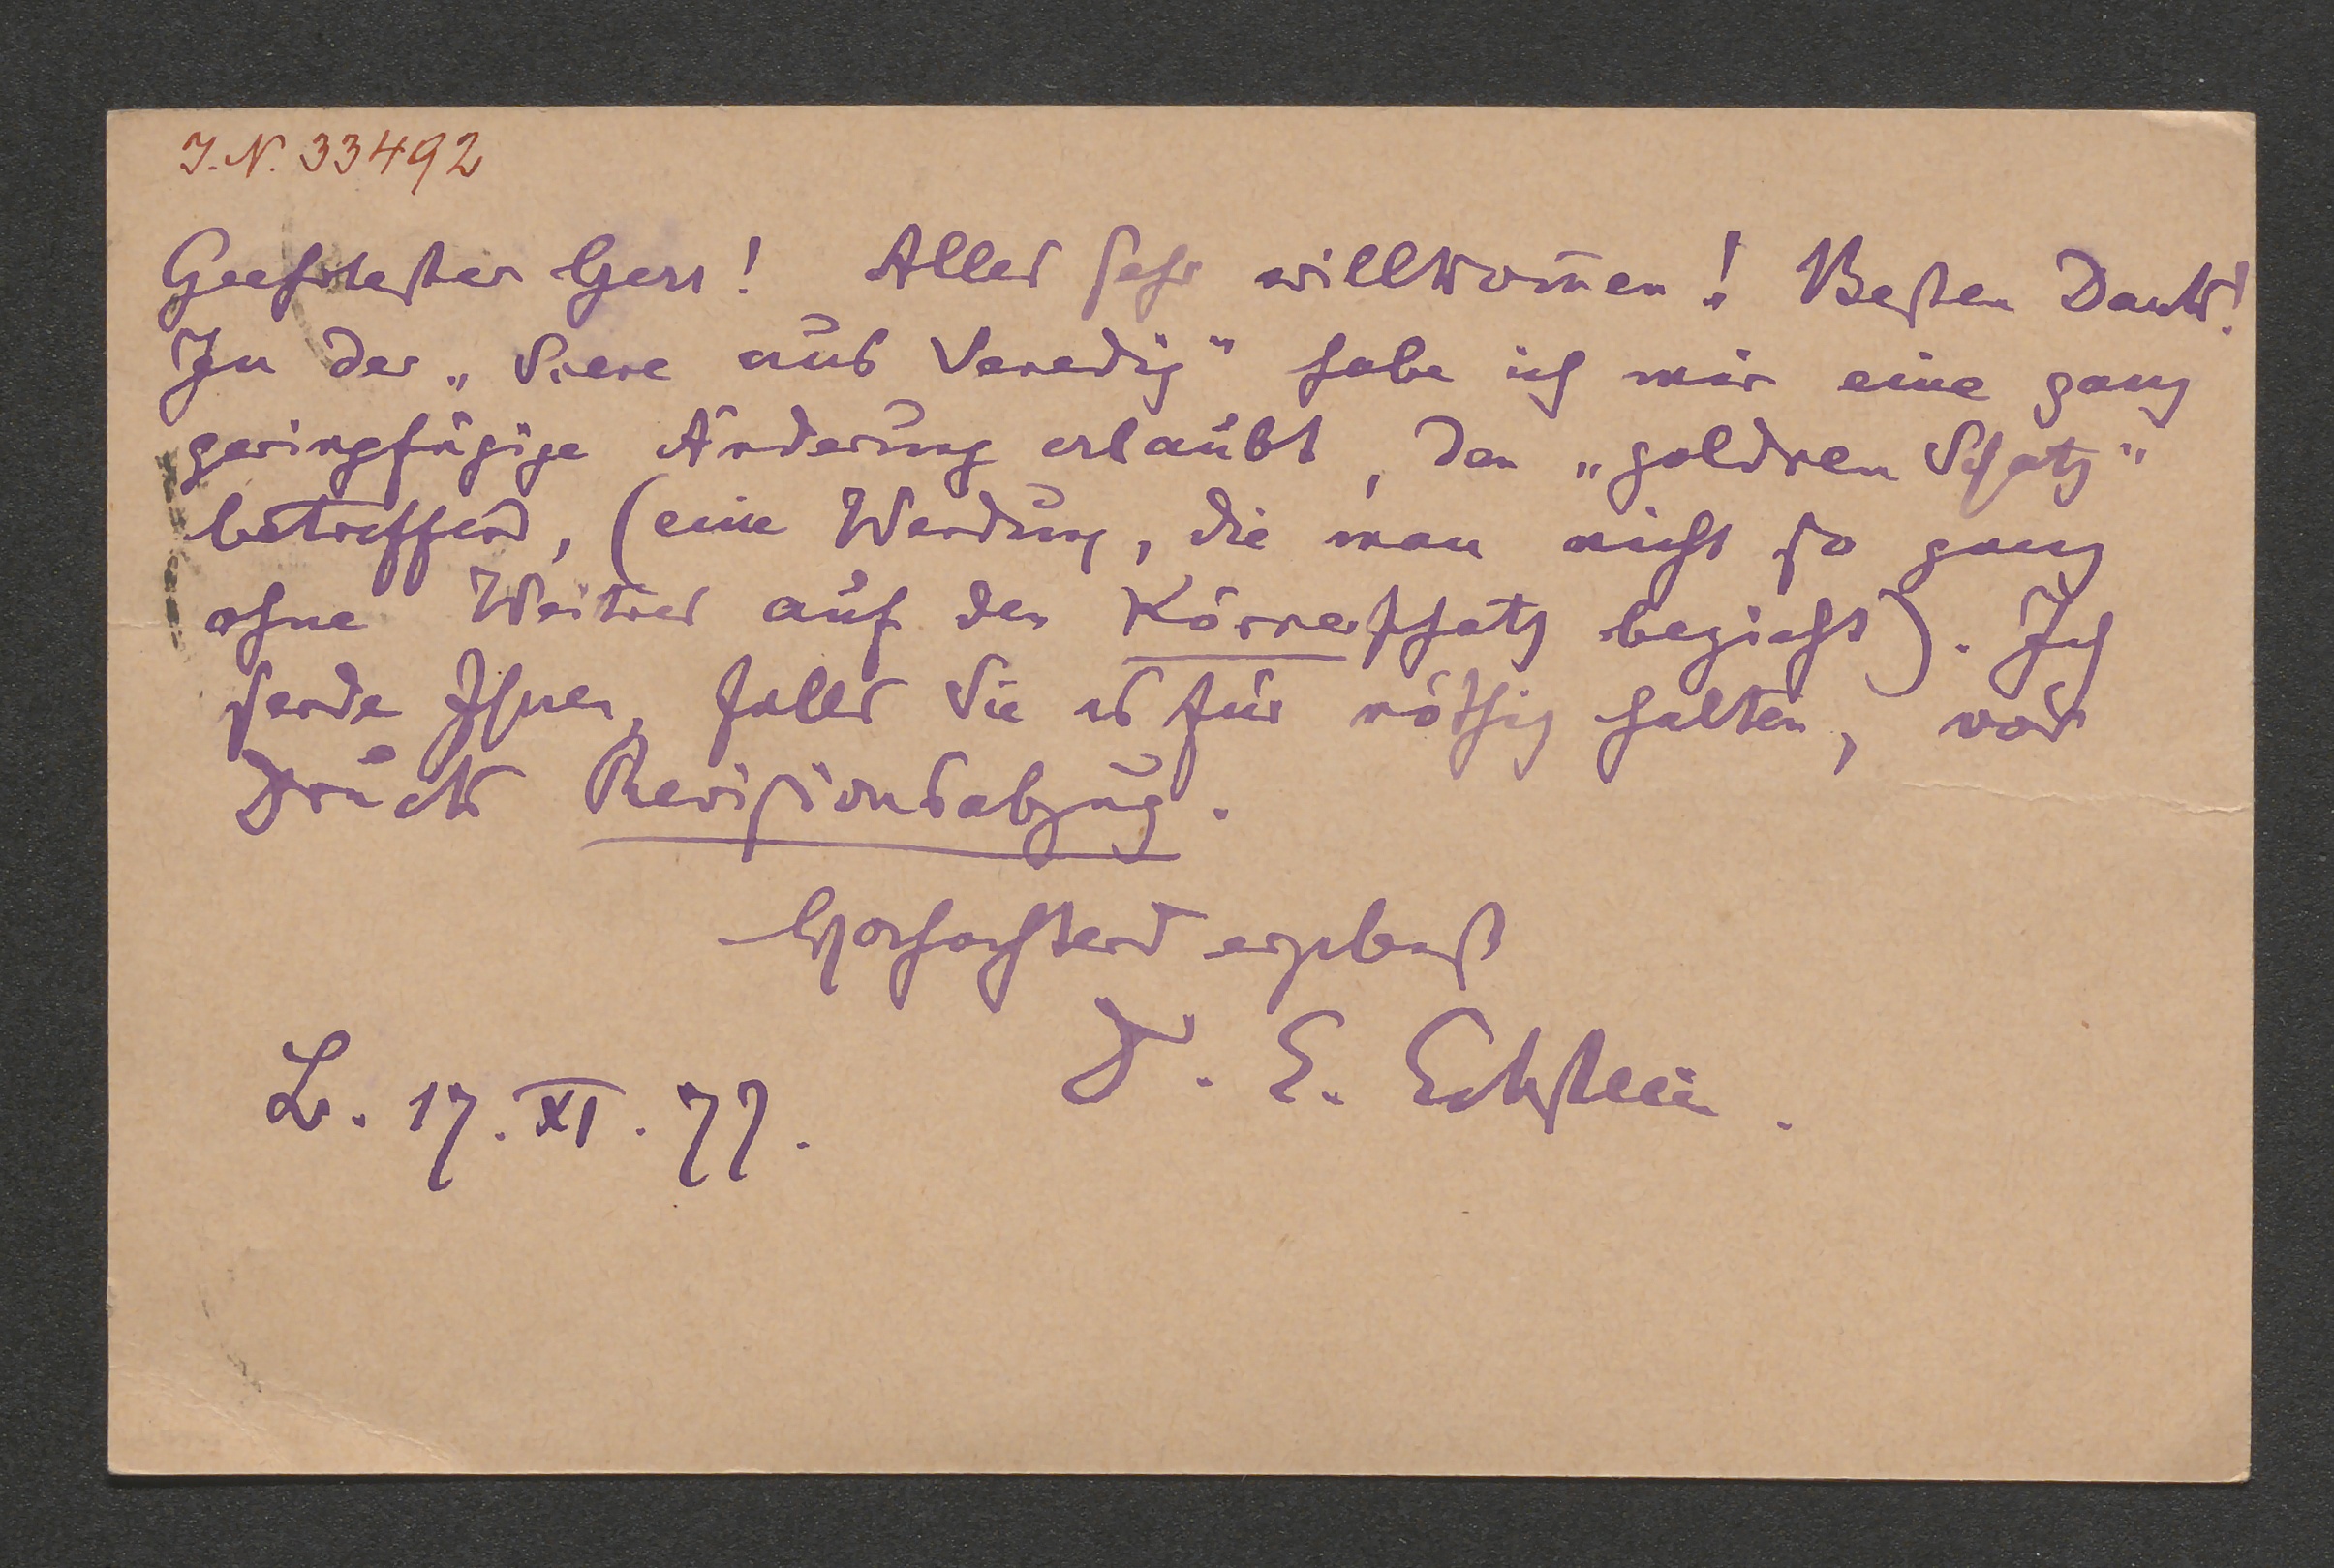 I.N. 33492
Geehrtester Herr! Alles sehr willkom̄en! Besten Dank!
In der „Scene aus Venedig" habe ich mir eine ganz
geringfügige Änderung erlaubt, den „goldnen Schatz"
betreffend, (eine Wendung, die man nicht so ganz
ohne Weitres auf den Körnerschatz bezieht). Ich
sende Ihnen, falls Sie es für nöthig halten, vor
Druck Revisionsabzug.
Hochachtend ergebenst
Dr. E. Eckstein.
L. 17. XI. 77.